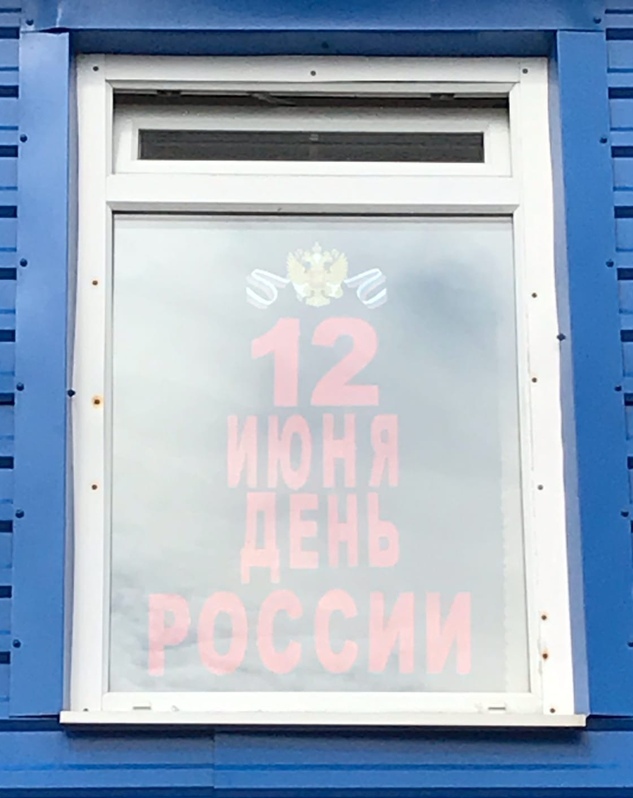 12
ИЮНЯ
ДЕНЬ
РОССИИ